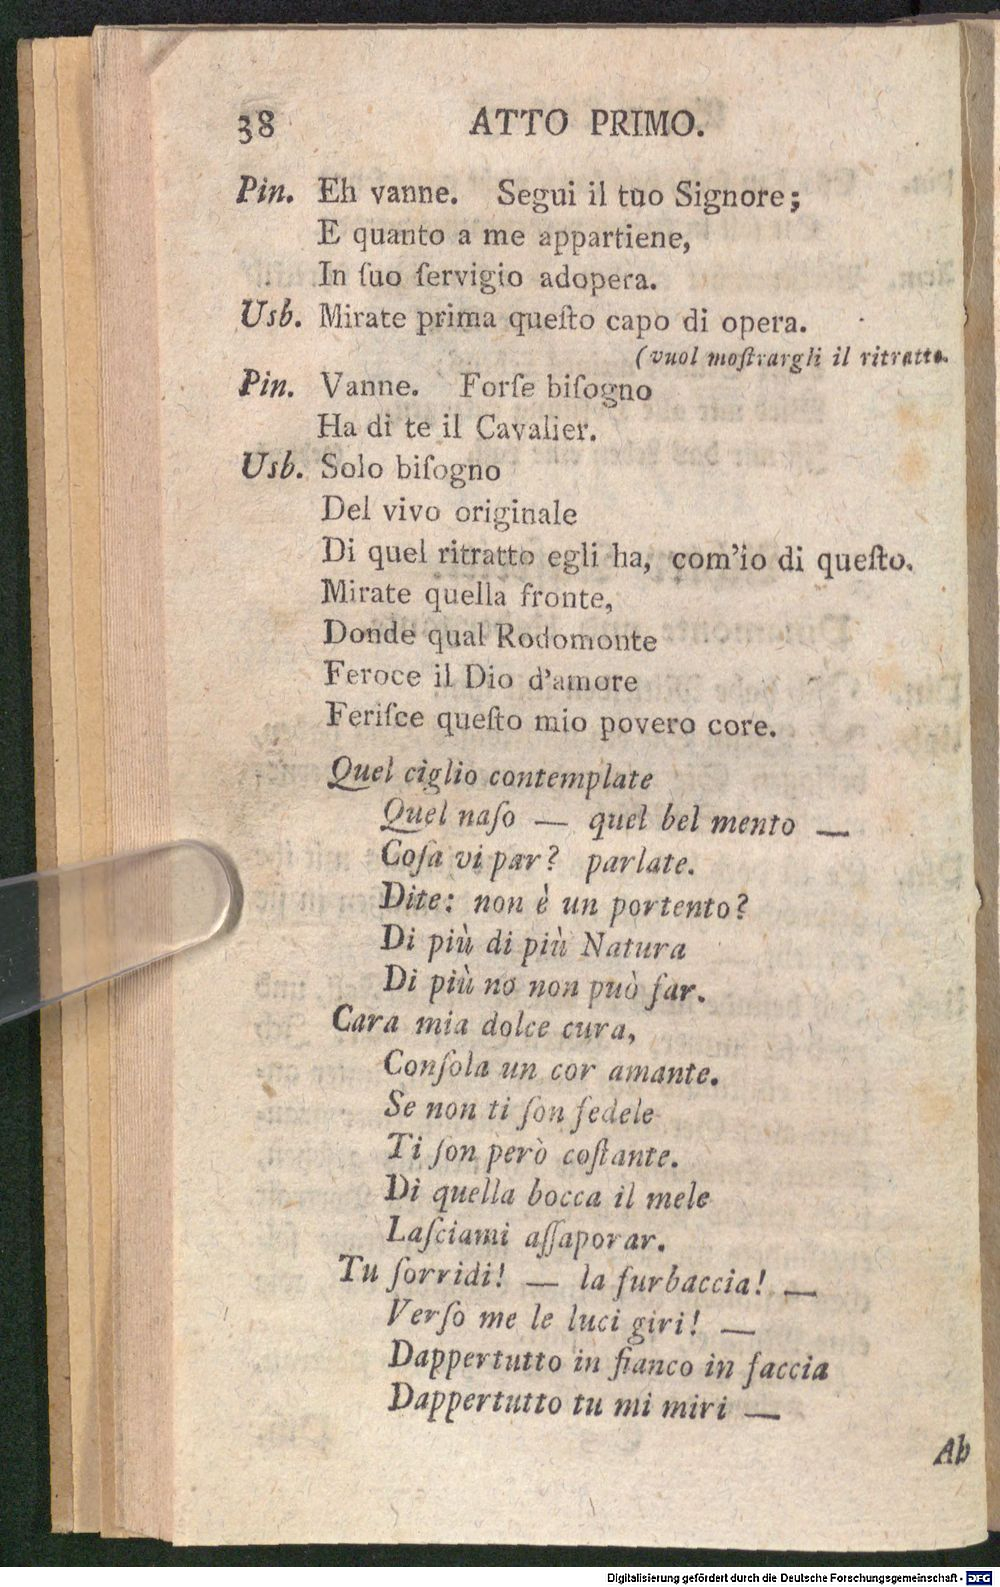 38 ATTO PRIMO.
Pin. Eh vanne. Segui il tuo Signore;
E quanto a me appartiene,
In ſuo ſervigio adopera.
Usb. Mirate prima queſto capo di opera.
(vuol moſtrargli il ritratto.
Pin. Vanne. Forſe biſogno
Ha di te il Cavalier.
Usb. Solo biſogno
Del vivo originale
Di quel ritratto egli ha, com'io di queſto.
Mirate quella fronte,
Donde qual Rodomonte
Feroce il Dio d'amore
Feriſce queſto mio povero core.
Quel ciglio contemplate
Quel naſo — quel bel mento —
Coſa vi par? parlate.
Dite: non è un portento?
Di più di più Natura
Di più no non può far.
Cara mia dolce cura,
Conſola un cor amante.
Se non ti ſon fedele
Ti ſon però coſtante.
Di quella bocca il mele
Laſciami aſſaporar.
Tu ſorridi! — la furbaccia! —
Verſo me le luci giri! —
Dappertutto in fianco in faccia
Dappertutto tu mi miri —
Ab
Digitalisierung gefördert durch die Deutsche Forschungsgemeinschaft - DFG